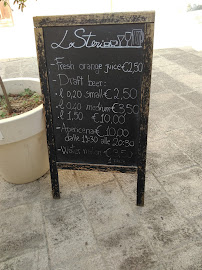 - Fresh orange juice €2,50
- Draft beer:
l 0,20 small €2,50
l 0,40 medium €3,50
l 1,50 €10,00
- Apericena €10,00
dalle 19:30 alle 20:30